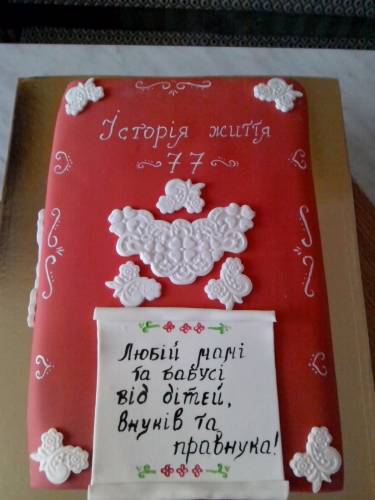 Історія життя
77
Любій мамі
та бабусі
від дітей,
внуків та
правнука!